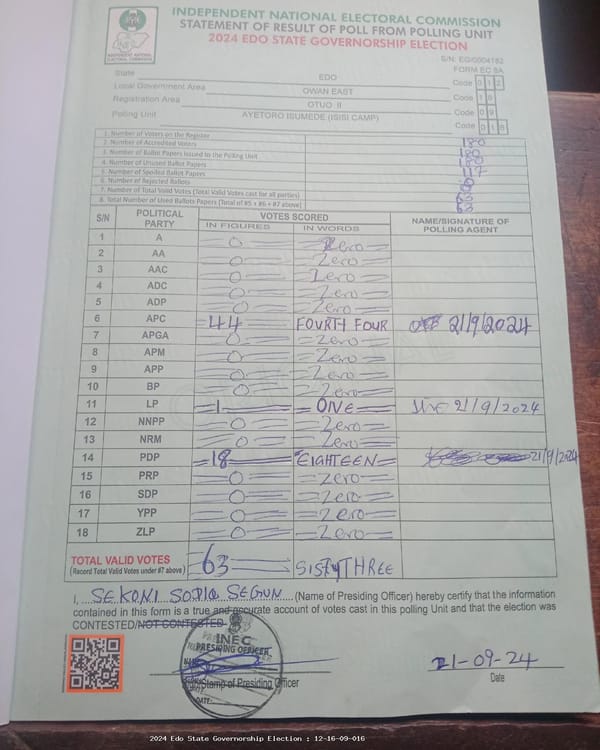 INDEPENDENT NATIONAL ELECTORAL COMMISSION
STATEMENT OF RESULT OF POLL FROM POLLING UNIT
2024 EDO STATE GOVERNORSHIP ELECTION
S/N: EG/0004152
FORM EC 8A
State EDO Code 0 1 2
Local Government Area OWAN EAST Code 1 6
Registration Area OTUO II Code 0 9
Polling Unit AYETORO ISUMEDE (ISISI CAMP) Code 0 1 6
1. Number of Voters on the Register 180
2. Number of Accredited Voters
3. Number of Ballot Papers Issued to the Polling Unit 180
4. Number of Unused Ballot Papers 117
5. Number of Spoiled Ballot Papers
6. Number of Rejected Ballots
7. Number of Total Valid Votes (Total Valid Votes cast for all parties) 63
8. Total Number of Used Ballots Papers (Total of #5 + #6 + #7 above) 63
S/N POLITICAL PARTY VOTES SCORED NAME/SIGNATURE OF POLLING AGENT
IN FIGURES IN WORDS
1 A 0 Zero
2 AA 0 Zero
3 AAC 0 Zero
4 ADC 0 Zero
5 ADP 0 Zero
6 APC 44 FOURTH FOUR 21/9/2024
7 APGA 0 Zero
8 APM 0 Zero
9 APP 0 Zero
10 BP 0 Zero
11 LP 1 ONE 21/9/2024
12 NNPP 0 Zero
13 NRM 0 Zero
14 PDP 18 EIGHTEEN 21/9/2024
15 PRP 0 Zero
16 SDP 0 Zero
17 YPP 0 Zero
18 ZLP 0 Zero
TOTAL VALID VOTES 63 SISTYTHREE
(Record Total Valid Votes under #7 above)
I, SEKONI SODIQ SEGUN (Name of Presiding Officer) hereby certify that the information
contained in this form is a true and accurate account of votes cast in this polling Unit and that the election was
CONTESTED/NOT CONTESTED
INEC
PRESIDING OFFICER
DATE:
21-09-24
Stamp of Presiding Officer Date
2024 Edo State Governorship Election : 12-16-09-016